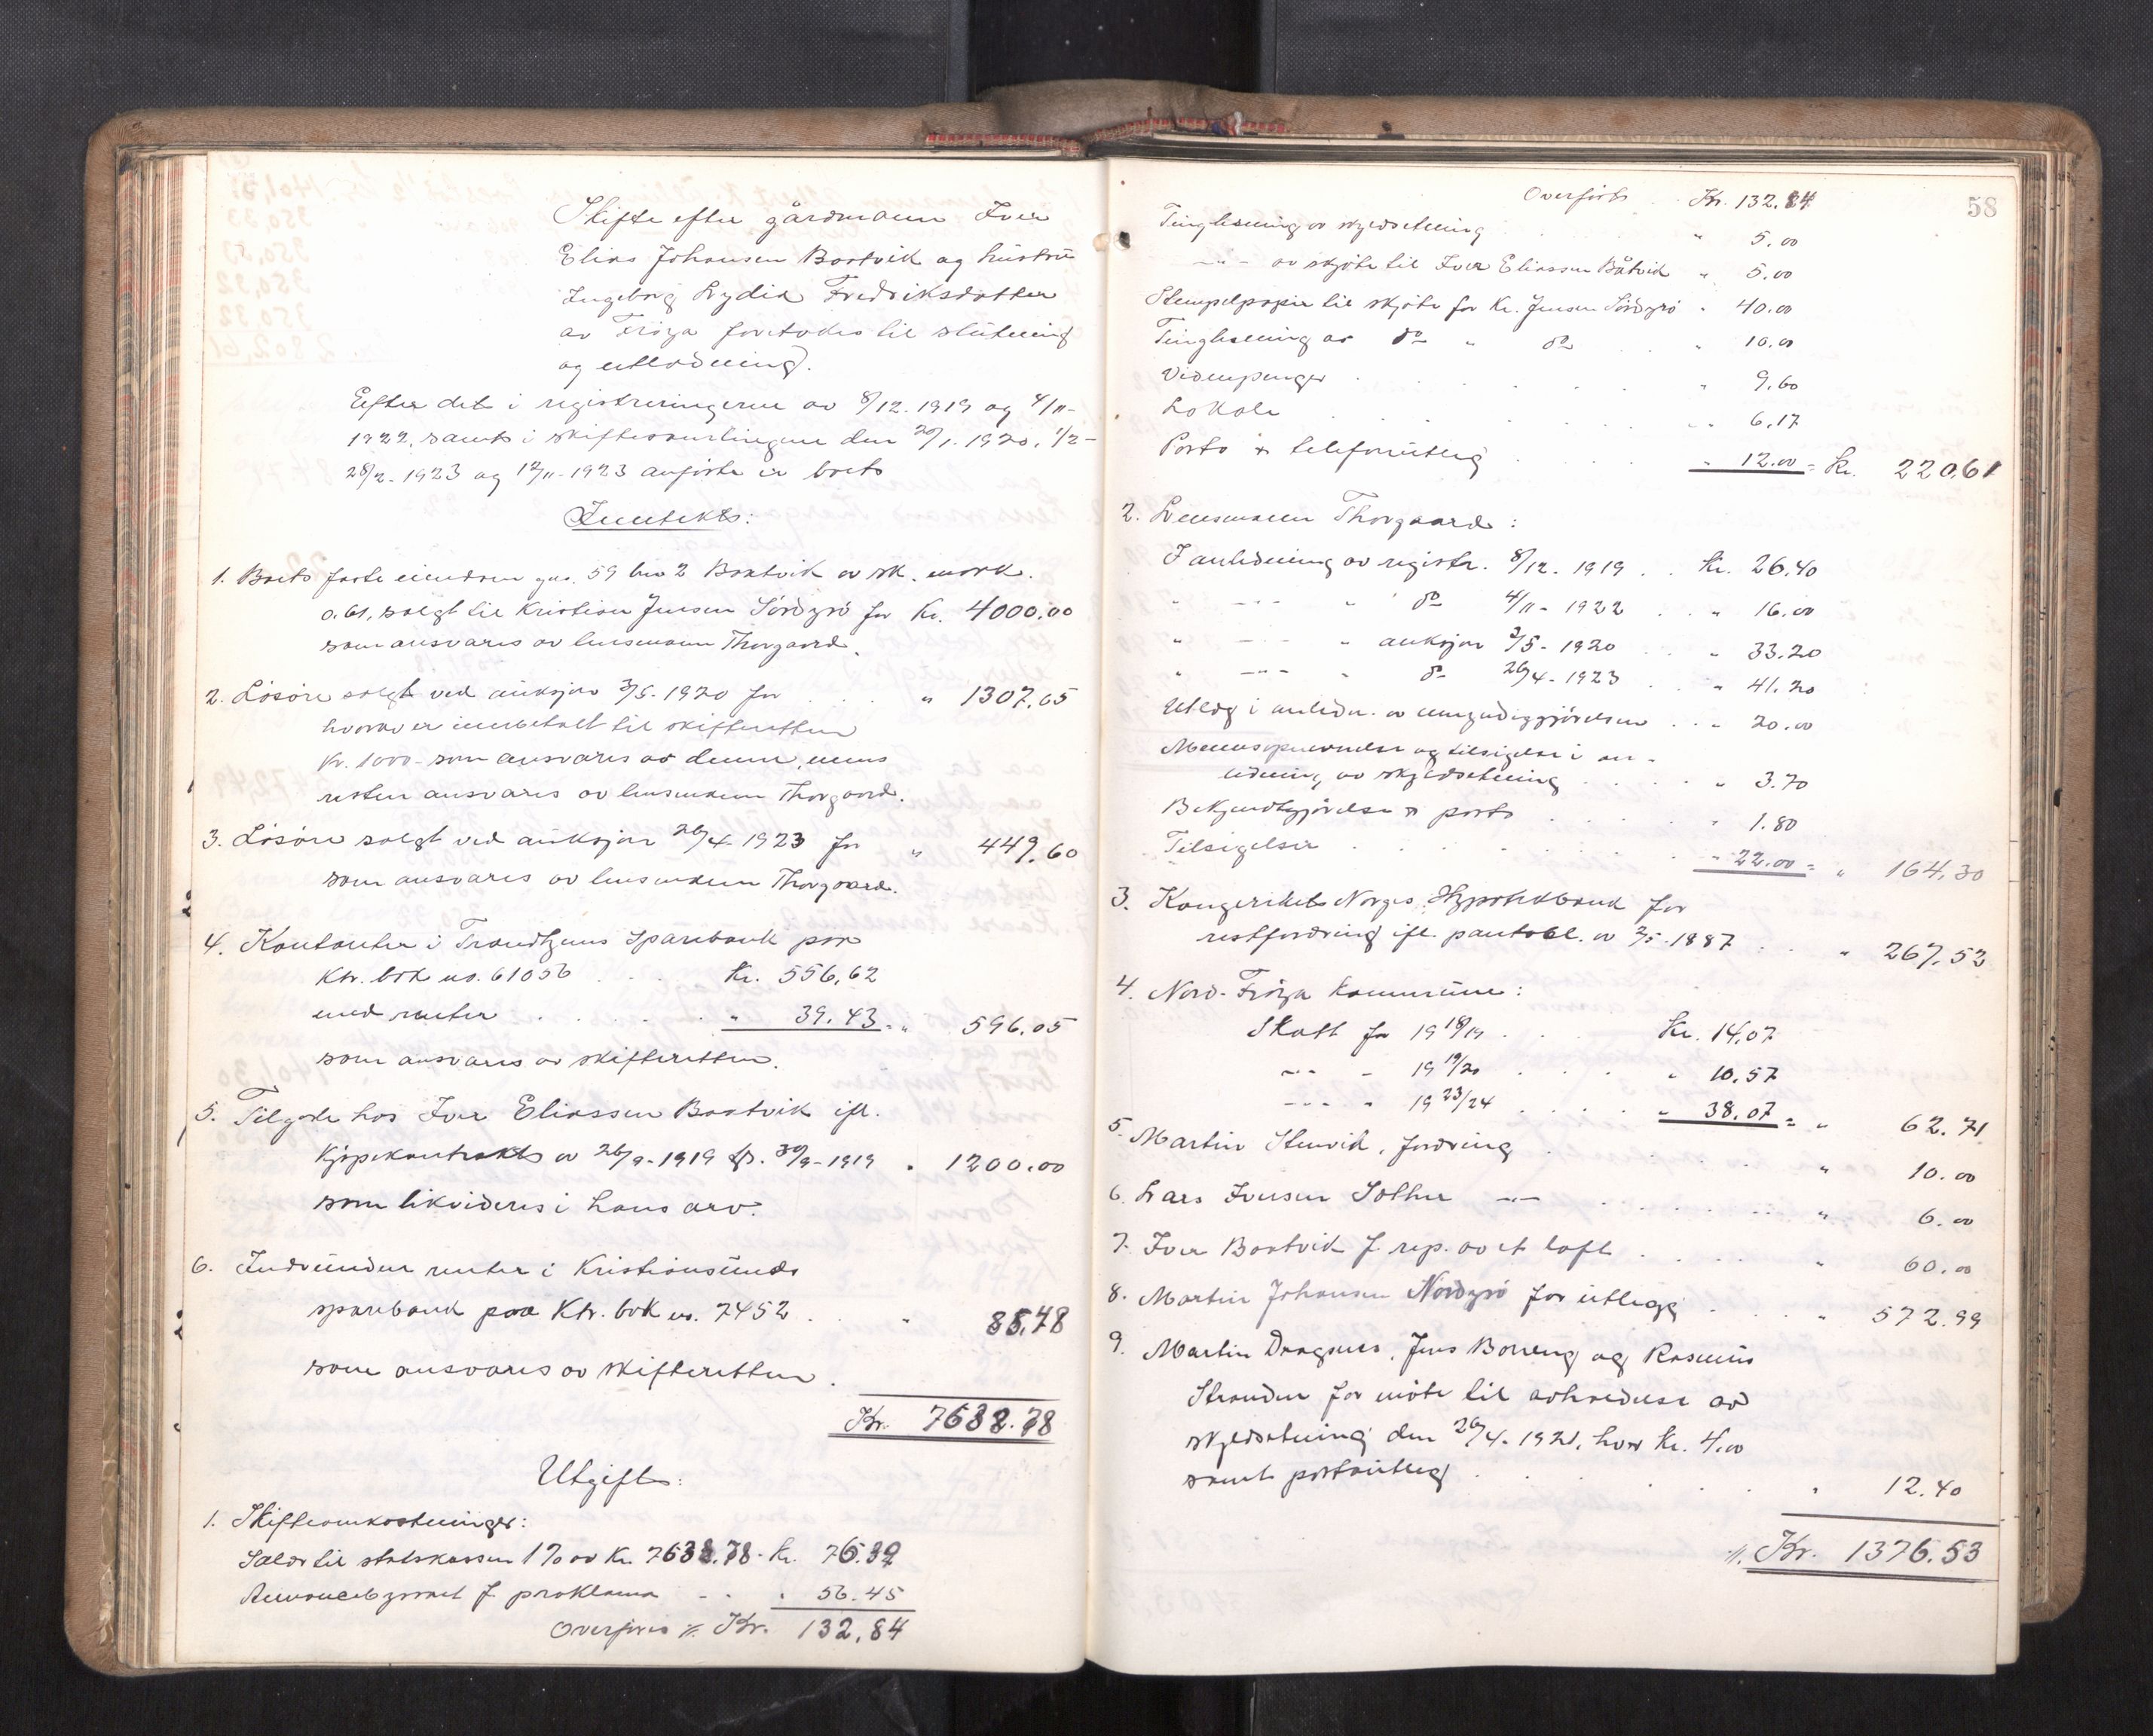 Skifte efter gårdmann Iver
Elias Johansen Baatvik og hustru
Ingeborg Lydia Fredriksdatter
av Frøya foretokes til slutning
og utlodning.
Efter det i registreringerne av 8/12. 1919 og 4/11-
1922, samt i skiftesamlingene den 20/1. 1920, 1/2-
28/2. 1923 og 12/11-1923 anførte er boets
Inntekt:
1. Boets faste eiendom gnr. 59 bnr 2 Baatvik av sk. mark.
0.61, solgt til Kristian Jensen Sørdyrø for Kr. 4000.00
som ansvares av lensmann Thorgaard.
2. Løsøre solgt ved auksjon 3/5. 1920 for . . . " 1307,65
hvorav er innbetalt til skifteretten
kr. 1000- som ansvares av denne, mens
resten ansvares av lensmann Thorgaard.
3. Løsøre solgt ved auksjon 26/4-1923 for " 449,60
som ansvares av lensmann Thorgaard.
4. Kontanter i Trondhjems Sparebank paa
Ktr. bok no. 61056 . . . Kr. 556,62
med renter . . . . . " 39.43 = " 596.05
som ansvares av skifteretten.
5. Tilgode hos Iver Eliassen Baatvik ifl.
Kjøpekontrakt av 26/9-1919 tgl. 30/9-1919 " 1200.00
som likvideres i hans arv.
6. Indvundne renter i Kristiansunds
sparebank paa Ktr. bok no. 7452 . . " 85,48
som ansvares av skifteretten.
Kr. 7638.78
Utgift:
1. Skifteomkostninger:
Salær til statskassen 1% av Kr. 7638.78. Kr. 76.39
Annoncebyraaet f. proklama - . " 56.45
Overføres ://: Kr. 132,84
58
Overført . . Kr. 132.84
Tinglesning av skyldsetning . . " 5.00
-"- av skjøte til Iver Eliassen Båtvik " 5.00
Stempelpapir til skjøte for Kr. Jensen Sørdyrø " 40.00
Tinglesning av do " do . " 10.00
Vidnepenger . . . . . " 9,60
Lokale . . . . . . " 6,17
Porto & telefonutlæg . . . . " 12.00 = Kr. 220,61
2. Lensmann Thorgaard:
I anledning av registr. 8/12. 1919 . . Kr. 26.40
" -"- " do 4/11- 1922 . . " 16.00
" -"- " auksjon 3/5- 1920 . . " 33.20
" -"- " do 26/4-1923 . . " 41.20
Utlæg i anledn. av umyndiggjørelsen . . " 20.00
Mennsopnevnelse og tilsigelse i an-
ledning av skyldsetning . . . . " 3.70
Bekjendtgjørelse & porto . . . . " 1.80
Tilsigelser . . . . . . . " 22.00 = " 164,30
3. Kongeriket Norges Hypotekbank for
restfordring ifl. pantobl. av 2/5-1887 . . " 267.53
4. Nord-Frøya kommune:
Skatt for 1918/19 . . . Kr. 14,07
-"- - 1919/20 . . . . " 10.57
-"- " 1923/24 . . . . " 38.07 = " 62.71
5. Martin Stenvik, fordring . . . . . " 10.00
6. Lars Iversen -"- . . . . . " 6.00
7. Iver Baatvik f. rep. av et loft . . . . " 60.00
8. Martin Johansen Nordyrø for utlegg . . . " 572.99
9. Martin Dragsnes, Jens Borreng og Rasmus
Stranden for møte til avholdelse av
skyldsetning den 26/4-1921, hver kr. 4.00
samt portoutlæg . . . . . . " 12.40
://: Kr. 1376.53